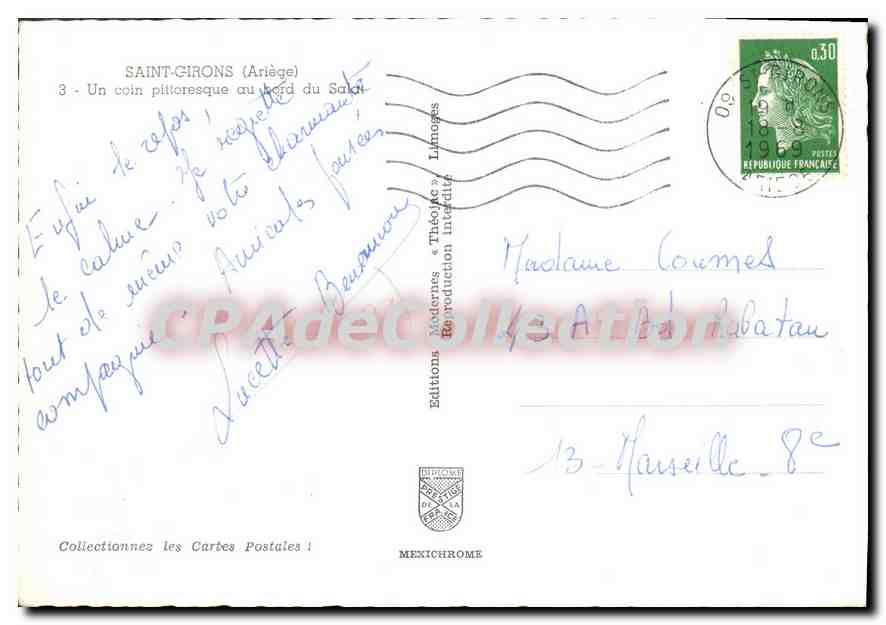 SAINT-GIRONS (Ariège)
3 - Un coin pittoresque au bord du Salat
Enfin le repos !
le calme. Je regrette
tout de même votre charmante
compagnie. Amicales pensées
Lucette
Editions Modernes « Théojac », Limoges
Reproduction Interdite
0,30
POSTES
REPUBLIQUE FRANÇAISE
09 ST GIRONS
18
1969
ARIEGE
Madame Coumes
Bd Rabatau
13 - Marseille - 8e
CPAdeCollection
DIPLOME
PRESTIGE
DE LA
FRANCE
MEXICHROME
Collectionnez les Cartes Postales !